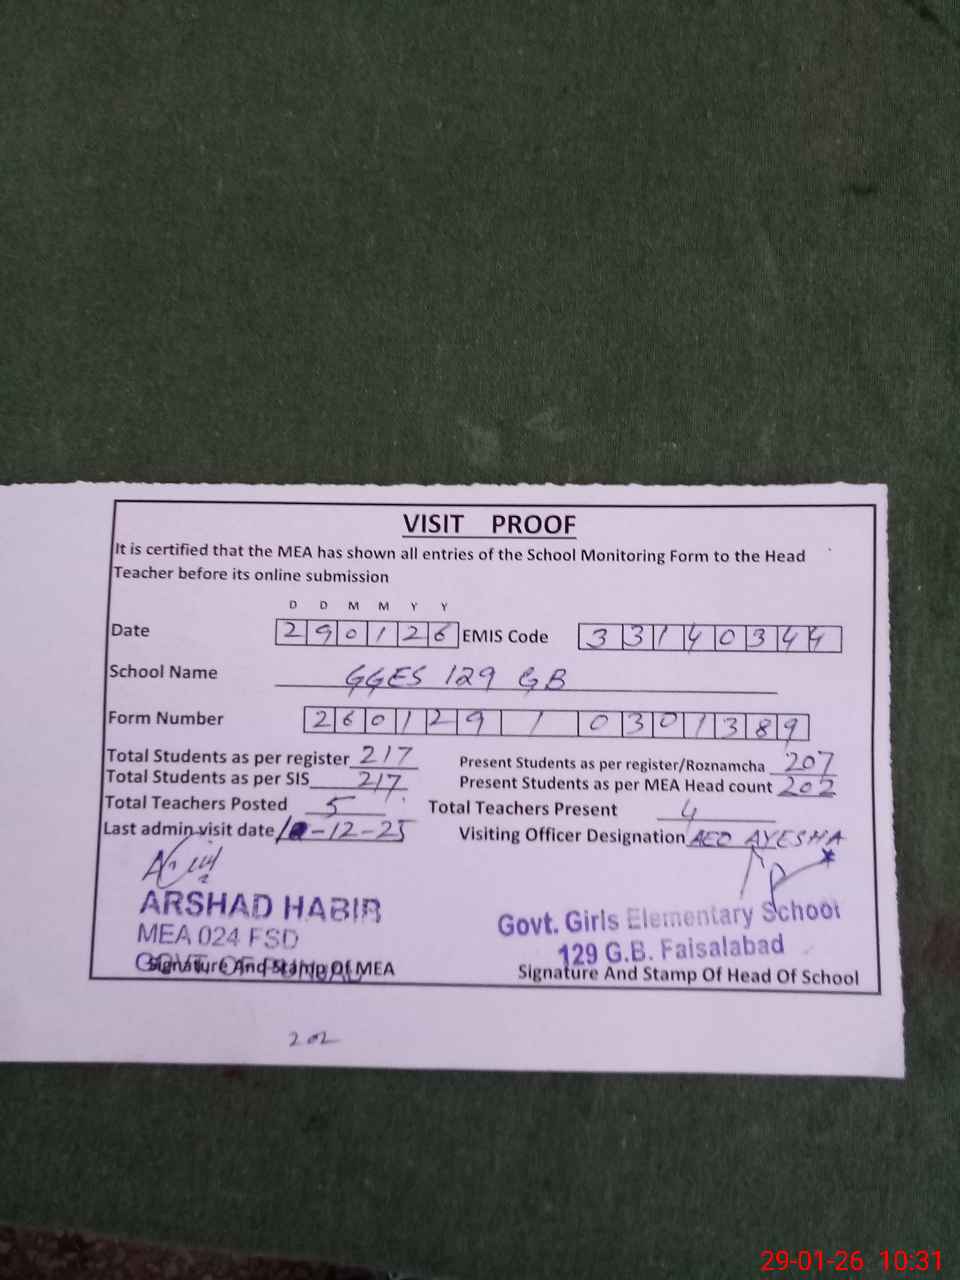 VISIT PROOF
It is certified that the MEA has shown all entries of the School Monitoring Form to the Head
Teacher before its online submission
D D M M Y Y
Date 290126 EMIS Code 33140344
School Name GGES 129 GB
Form Number 260129 / 0301389
Total Students as per register 217 Present Students as per register/Roznamcha 207
Total Students as per SIS 217 Present Students as per MEA Head count 202
Total Teachers Posted 5 Total Teachers Present 4
Last admin visit date -12-25 Visiting Officer Designation AEO AYESHA
ARSHAD HABIB
MEA 024 FSD
GOVT. OF PUNJAB
Signature And Stamp Of MEA
Govt. Girls Elementary School
129 G.B. Faisalabad
Signature And Stamp Of Head Of School
202
29-01-26 10:31